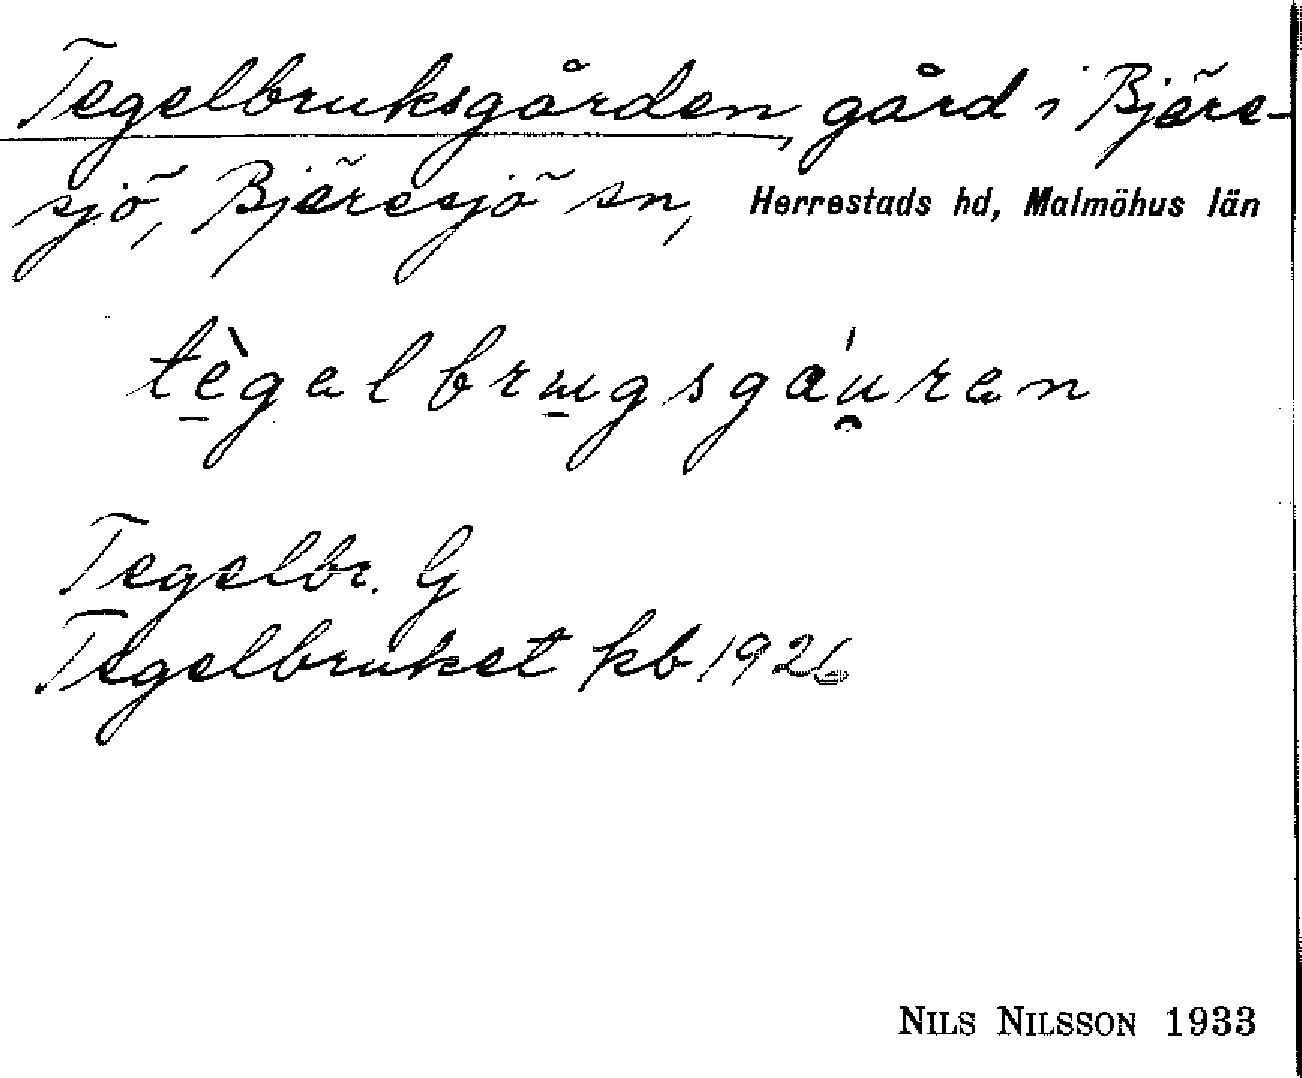 Tegelbruksgården, gård i Bjäre-
sjö, Bjäresjö sn, Herrestads hd, Malmöhus län
tègəlbrɯgsgáu̯rən
Tegelbr. G
Tegelbruket kb 1926
NILS NILSSON 1933